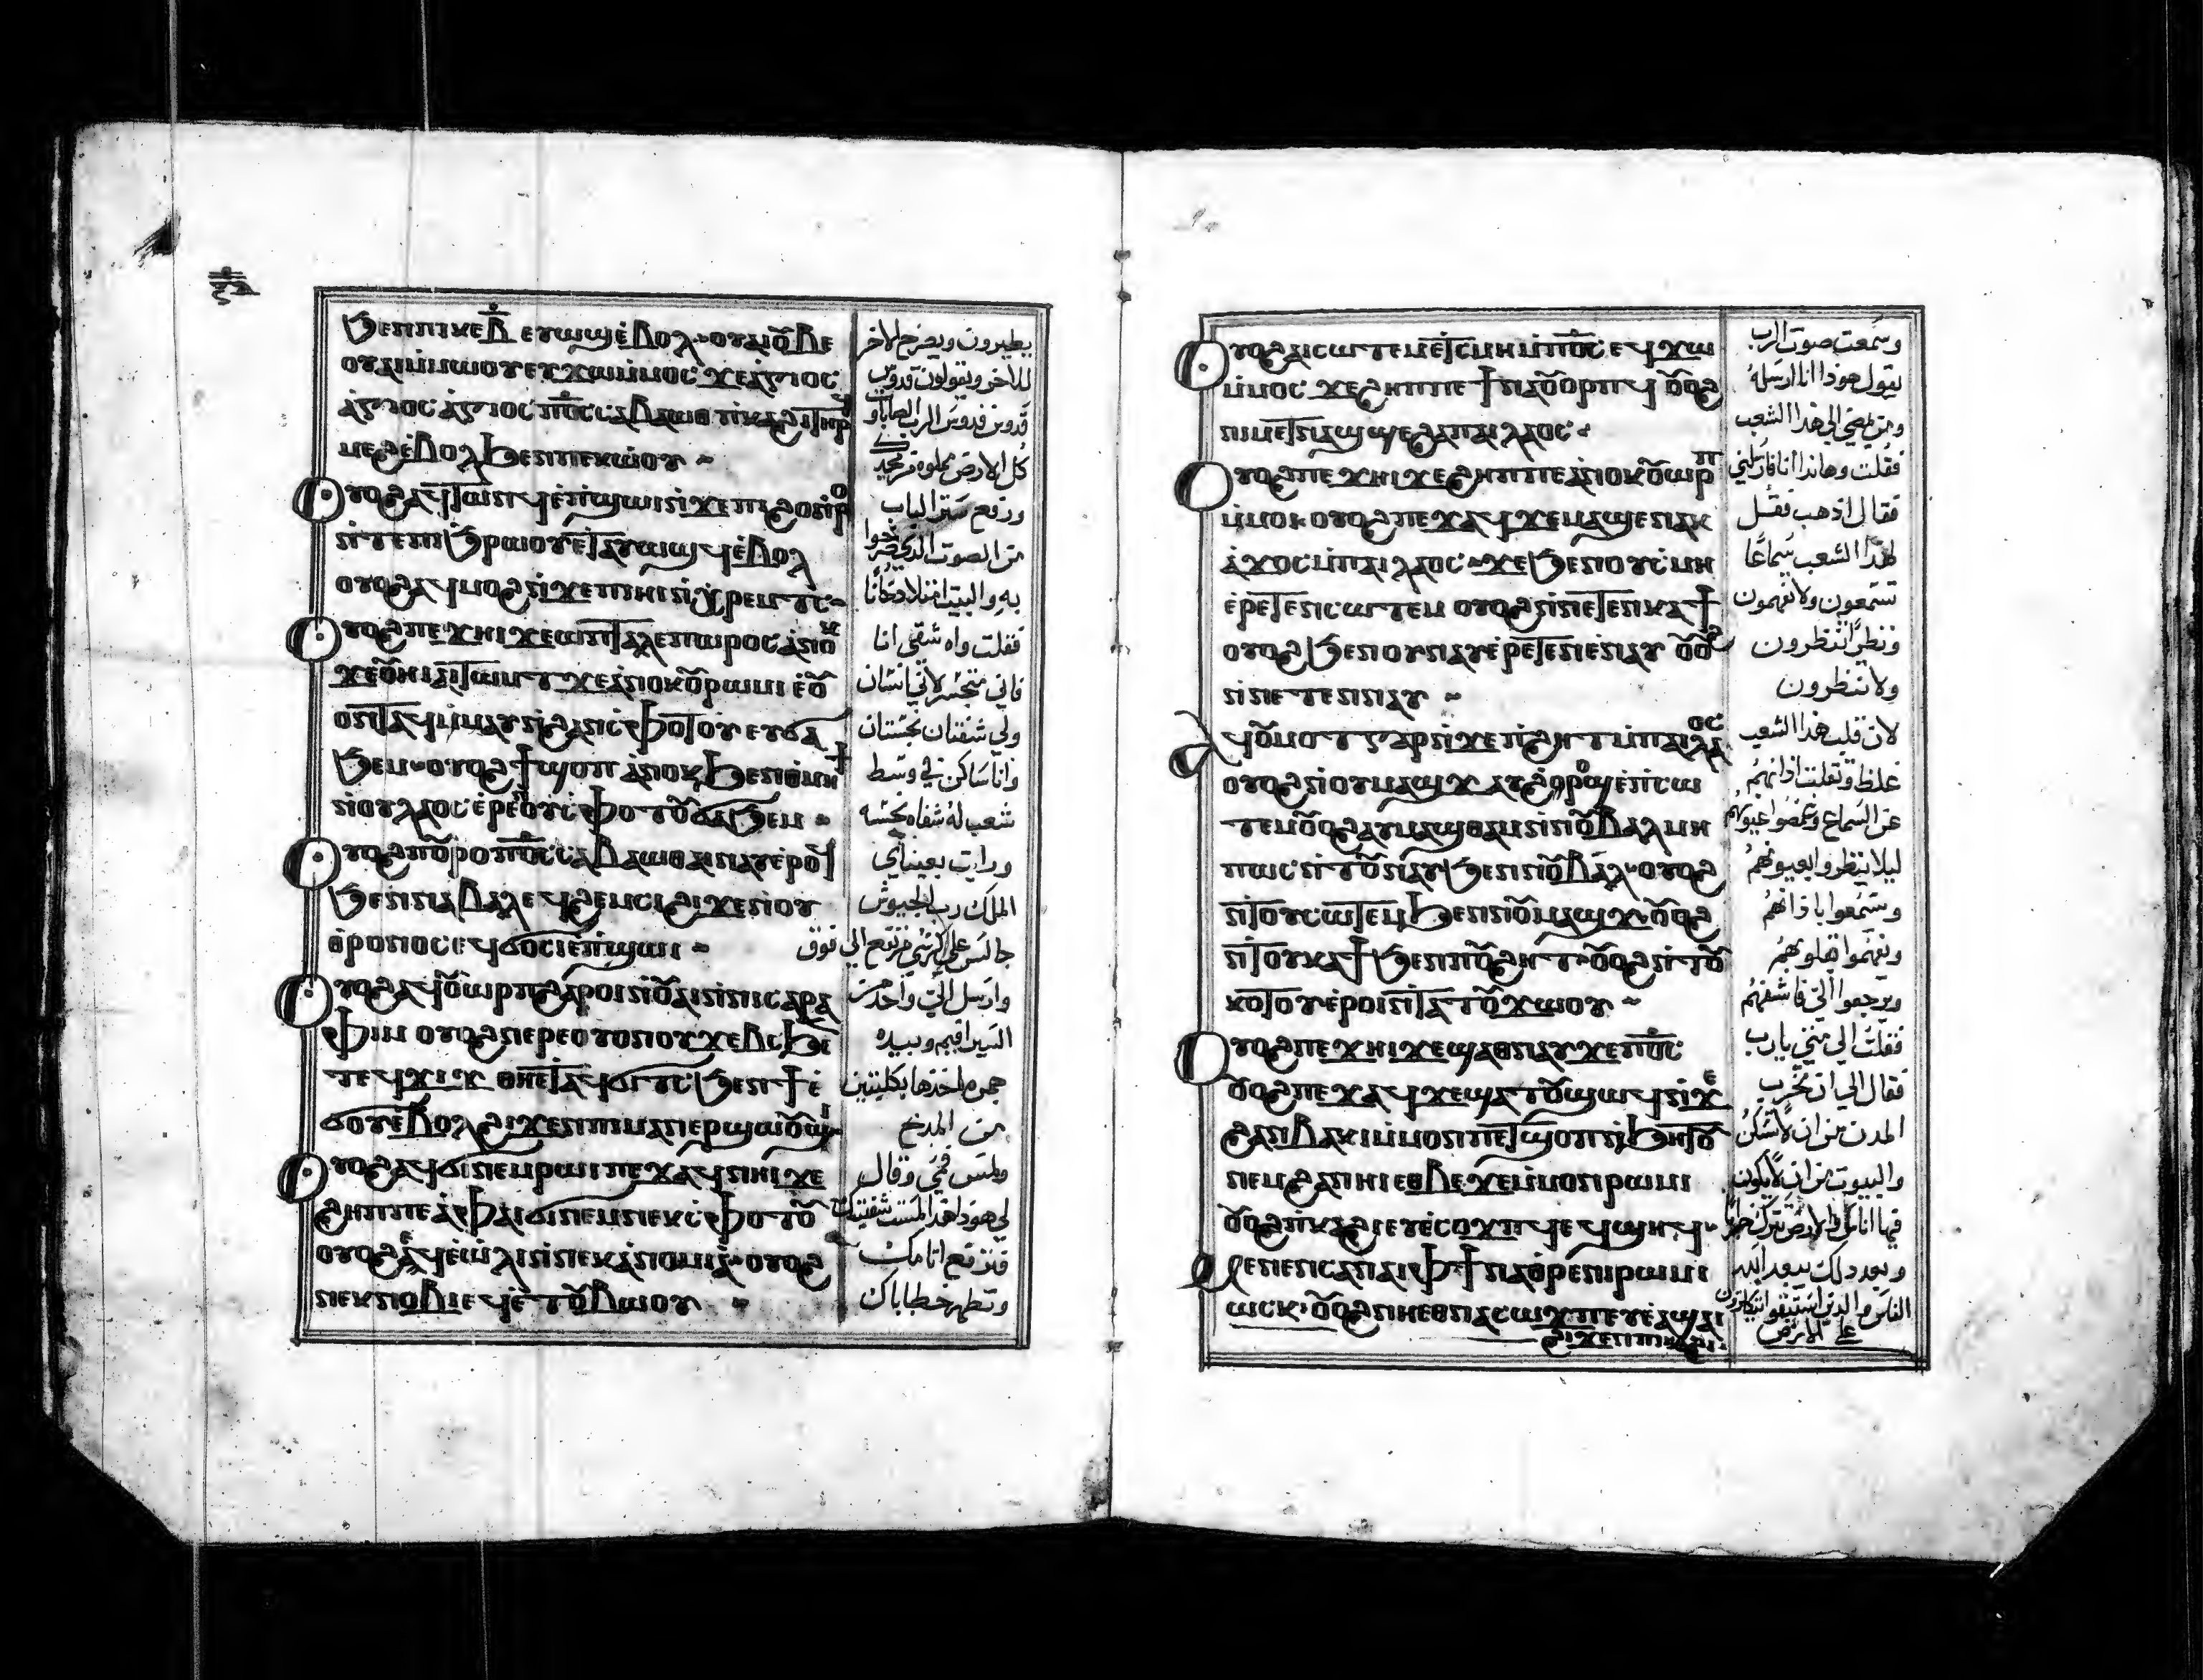 ϧⲉⲛⲡⲓⲕⲉⲃ̅ ⲉⲩⲱϣⲉ̀ⲃⲟⲗ·ⲟⲩⲁⲓⲟⲩⲃⲉ
ⲟⲩⲁⲓⲙ̀ⲙⲱⲟⲩ ⲉⲩϫⲱⲙ̀ⲙⲟⲥ ϫⲉⲁⲅⲓⲟⲥ
ⲁ̀ⲅⲓⲟⲥ ⲁ̀ⲅⲓⲟⲥ ⲡ̅ⲟ̅ⲥ̅ ⲥⲁⲃⲁⲱⲑ ⲡ̀ⲕⲁϩⲓⲧⲏⲣϥ
ⲙⲉϩⲉ̀ⲃⲟⲗϧⲉⲛⲡⲉⲕⲱ̀ⲟⲩ
Ⲟⲩⲟϩⲁϥⲧⲱⲛϥⲉ̀ⲡ̀ϣⲱⲓⲛ̀ϫⲉⲡⲓϩⲟⲛ̀ⲣⲟ
ⲛ̀ⲧⲉⲡⲓϧⲣⲱⲟⲩⲉ̀ⲧⲁⲩⲱϣϥⲉ̀ⲃⲟⲗ
ⲟⲩⲟϩⲁϥⲙⲟϩⲛ̀ϫⲉⲡⲓⲏⲓⲛ̀ⲭⲣⲉⲙⲧⲥ
Ⲟⲩⲟϩⲡⲉϫⲏⲓϫⲉⲱⲡ̀ⲧⲁⲗⲉⲡⲱⲣⲟⲥⲁ̀ⲛⲟⲕ
ϫⲉⲟⲩⲏⲓⲁⲓⲧⲱⲙⲧ ϫⲉⲁ̀ⲛⲟⲕⲟⲩⲣⲱⲙⲓ ⲉ̀ⲟⲩ
ⲟⲛⲧⲁϥⲙ̀ⲙⲁⲩⲛ̀ϩⲁⲛⲥ̀ⲫⲟⲧⲟⲩ ⲉⲩϭⲁ
ϧⲉⲙ·ⲟⲩⲟϩϯϣⲟⲡ ⲁ̀ⲛⲟⲕϧⲉⲛⲑ̀ⲙⲏϯ
ⲛ̀ⲟⲩⲗⲁⲟⲥ ⲉ̀ⲣⲉⲛⲟⲩⲥ̀ⲫⲟⲧⲟⲩϭⲁϧⲉⲙ
Ⲟⲩⲟϩⲡⲟⲩⲣⲟⲡ̅ⲟ̅ⲥ̅ⲥⲁⲃⲁⲱⲑⲁⲓⲛⲁⲩⲉ̀ⲣⲟϥ
ϧⲉⲛⲛⲁⲃⲁⲗⲉϥϩⲉⲙⲥⲓϩⲓϫⲉⲛⲟⲩ
ⲑⲣⲟⲛⲟⲥⲉϥϭⲟⲥⲓⲉ̀ⲡ̀ϣⲱⲓ
Ⲟⲩⲟϩⲁϥⲟⲩⲱⲣⲡϩⲁⲣⲟⲓⲛ̀ⲟⲩⲁⲓⲛ̀ⲛⲓⲥⲁⲣⲁ
ⲫⲓⲙ ⲟⲩⲟϩⲛⲉⲣⲉⲟⲩⲟⲛⲟⲩϫⲉⲃⲥϧⲉ
ⲧⲉϥϫⲓϫ ⲑⲏⲉⲧⲁϥϭⲓⲧⲥϧⲉⲛϯⲉ̀
ϭⲟⲩⲉ̀ⲃⲟⲗϩⲓϫⲉⲛⲡⲓⲙⲁⲛⲉⲣϣⲱⲟⲩϣⲓ
Ⲟⲩⲟϩⲁϥϭⲓⲛⲉⲙⲣⲱⲓⲡⲉϫⲁϥⲛⲏⲓϫⲉ
ϩⲏⲡⲡⲉⲁ̀ⲫⲁⲓϭⲓⲛⲉⲙⲛⲉⲕⲥ̀ⲫⲟⲧⲟⲩ
ⲟⲩⲟϩⲉϥⲉ̀ⲱ̀ⲗⲓⲛ̀ⲛⲉⲕⲁ̀ⲛⲟⲙⲓⲁ̀·ⲟⲩⲟϩ
ⲛⲉⲕⲛⲟⲃⲓⲉϥⲉ̀ⲧⲟⲩⲃⲱⲟⲩ
يطيرون ويصرخ الاخر
للاخر ويقولون قدوس
قدوس قدوس الرب الصاباوت
كل الارض مملوه من مجدك
ورفع ستر الباب
من الصوت الذي صرخوا
به والبيت امتلا دخانا
فقلت واه شقي انا
فاني متحسر لاني انسان
ولي شفتان نجستان
وانا ساكن في وسط
شعب له شفاه نجسه
ورايت بعيناي
الملك رب الجيوش
جالس علي كرسي مرتفع الي فوق
وارسل الي واحد من
السيرافيم وبيده
جمره اخذها بكلبتين
من المدبح
ولمس فمي وقال
لي هودا هذا لمست شفتيك
فتزفع اثامك
وتطهر خطاياك
Ⲟⲩⲟϩⲁⲓⲥⲱⲧⲉⲙⲉ̀ⲧ̀ⲥⲙⲏⲙ̀ⲡ̅ⲟ̅ⲥ̅ ⲉϥϫⲱ
ⲙ̀ⲙⲟⲥ ϫⲉϩⲏⲡⲡⲉ ϯⲛⲁⲟⲩⲟⲣⲡϥ ⲟⲩⲟϩ
ⲛⲓⲙⲉⲧⲛⲁϣϣⲉϩⲁⲡⲁⲓⲗⲁⲟⲥ
Ⲟⲩⲟϩⲡⲉϫⲏⲓϫⲉϩⲏⲡⲡⲉⲁ̀ⲛⲟⲕⲟⲩⲱⲣⲡ
ⲙ̀ⲙⲟⲓ ⲟⲩⲟϩⲡⲉϫⲁϥϫⲉⲙⲁϣⲉⲛⲁⲕ
ⲁ̀ϫⲟⲥⲙ̀ⲡⲁⲓⲗⲁⲟⲥ·ϫⲉϧⲉⲛⲟⲩⲥ̀ⲙⲏ
ⲉ̀ⲣⲉⲧⲉⲛⲥⲱⲧⲉⲙ ⲟⲩⲟϩⲛ̀ⲛⲉⲧⲉⲛⲕⲁϯ
ⲟⲩⲟϩϧⲉⲛⲟⲩⲛⲁⲩⲉ̀ⲣⲉⲧⲉⲛⲉⲛⲁⲩ ⲟⲩⲟϩ
ⲛ̀ⲛⲉⲧⲉⲛⲛⲁⲩ
Ⲁϥⲟⲩⲙⲟⲧⲅⲁⲣⲛ̀ϫⲉⲡ̀ϩⲏⲧⲙ̀ⲡⲁⲓⲗⲁⲟⲥ
ⲟⲩⲟϩⲛⲟⲩⲙⲁϣϫ ⲁⲩϩ̀ⲣⲟϣⲉ̀ⲡ̀ⲥⲱ
ⲧⲉⲙⲟⲩⲟϩⲁⲩⲙⲁϣⲑⲁⲙⲛ̀ⲛⲟⲩⲃⲁⲗ ⲙⲏ
ⲡⲱⲥⲛ̀ⲧⲟⲩⲛⲁⲩϧⲉⲛⲛⲟⲩⲃⲁⲗ·ⲟⲩⲟϩ
ⲛ̀ⲧⲟⲩⲥⲱⲧⲉⲙϧⲉⲛⲛⲟⲩⲙⲁϣϫ·ⲟⲩⲟϩ
ⲛ̀ⲧⲟⲩⲕⲁϯϧⲉⲛⲡⲟⲩϩⲏⲧ·ⲟⲩⲟϩⲛ̀ⲧⲟⲩ
ⲕⲟⲧⲟⲩⲉ̀ⲣⲟⲓⲛ̀ⲧⲁⲧⲟⲩϫⲱⲟⲩ
Ⲟⲩⲟϩⲡⲉϫⲏⲓϫⲉϣⲁⲑⲛⲁⲩϫⲉⲡ̅ⲟ̅ⲥ̅
ⲟⲩⲟϩⲡⲉϫⲁϥϫⲉϣⲁⲧⲟⲩϣⲱϥⲛ̀ϫⲉ
ϩⲁⲛⲃⲁⲕⲓⲙ̀ⲙⲟⲛⲡⲉⲧϣⲟⲡⲛ̀ϧⲏⲧⲟⲩ
ⲛⲉⲙϩⲁⲛⲏⲓⲉⲑⲃⲉϫⲉⲙ̀ⲙⲟⲛⲣⲱⲙⲓ
ⲟⲩⲟϩⲡ̀ⲕⲁϩⲓⲉⲩⲉ̀ⲥⲟϫⲡϥⲉϥϣⲏϥ
Ⲙⲉⲛⲉⲛⲥⲁⲛⲁⲓⲫϯⲛⲁⲟⲩⲣⲉⲛⲓⲣⲱⲙⲓ
ⲱⲥⲕ·ⲟⲩⲟϩⲛⲏⲉⲑⲛⲁⲥⲱϫⲡⲉⲩⲉ̀ⲁϣⲁⲓ
ϩⲓϫⲉⲛⲡⲓⲕⲁϩⲓ
وسمعت صوت الرب
يقول هودا انا ارسله
ومن يمضي الي هذا الشعب
فقلت وهاندا انا فارسلني
فقال اذهب فقل
لهذا الشعب سماعا
تسمعون ولا تفهمون
ونظرا تنظرون
ولا تنظرون
لان قلب هذا الشعب
غلظ وثقلت اذانهم
عن السماع وغمضوا عيونهم
ليلا ينظروا بعيونهم
ويسمعوا باذانهم
ويفهموا بقلوبهم
ويرجعوا الي فاشفيهم
فقلت الي متي يارب
فقال الي ان تخرب
المدن من ان لا تسكن
والبيوت من ان لا يكون
فيها اناس والارض تترك خرابا
وبعد دلك يبعد الله
الناس والدين استبقوا يتكاثرون
علي الارض